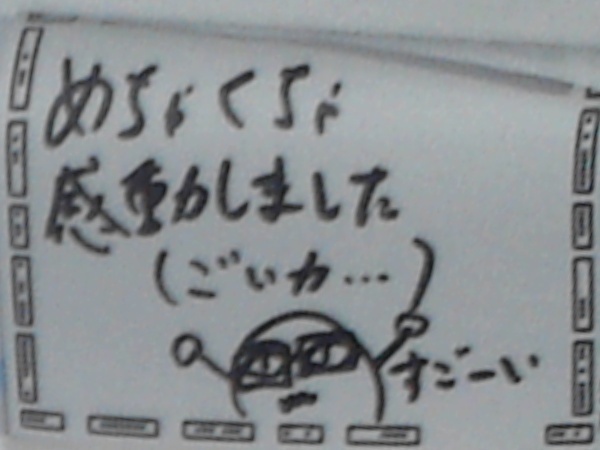 めちゃくちゃ
感動しました
(ごい力…)
すごーい